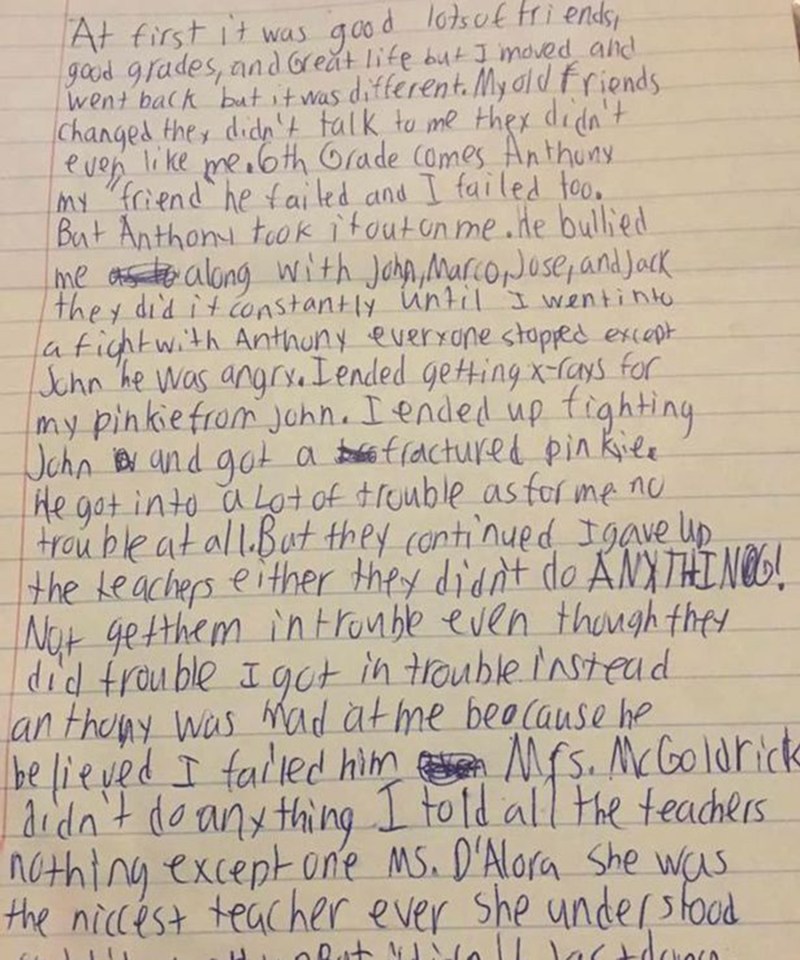 At first it was good lots of friends,
good grades, and Great life but I moved and
went back but it was different. My old friends
changed they didn't talk to me they didn't
even like me. 6th Grade comes Anthony
my "friend" he failed and I failed too.
But Anthony took it out on me. He bullied
me along with John, Marco, Jose, and Jack
they did it constantly until I went into
a fight with Anthony everyone stopped except
John he was angry. I ended getting x-rays for
my pinkie from John. I ended up fighting
John and got a fractured pinkie.
He got into a Lot of trouble as for me no
trouble at all. But they continued I gave up
the teachers either they didn't do ANYTHING!
Not get them in trouble even though they
did trouble I got in trouble instead
anthony was mad at me beacause he
believed I failed him Mrs. McGoldrick
didn't do anything I told all the teachers
nothing except one Ms. D'Alora she was
the niccest teacher ever she understood